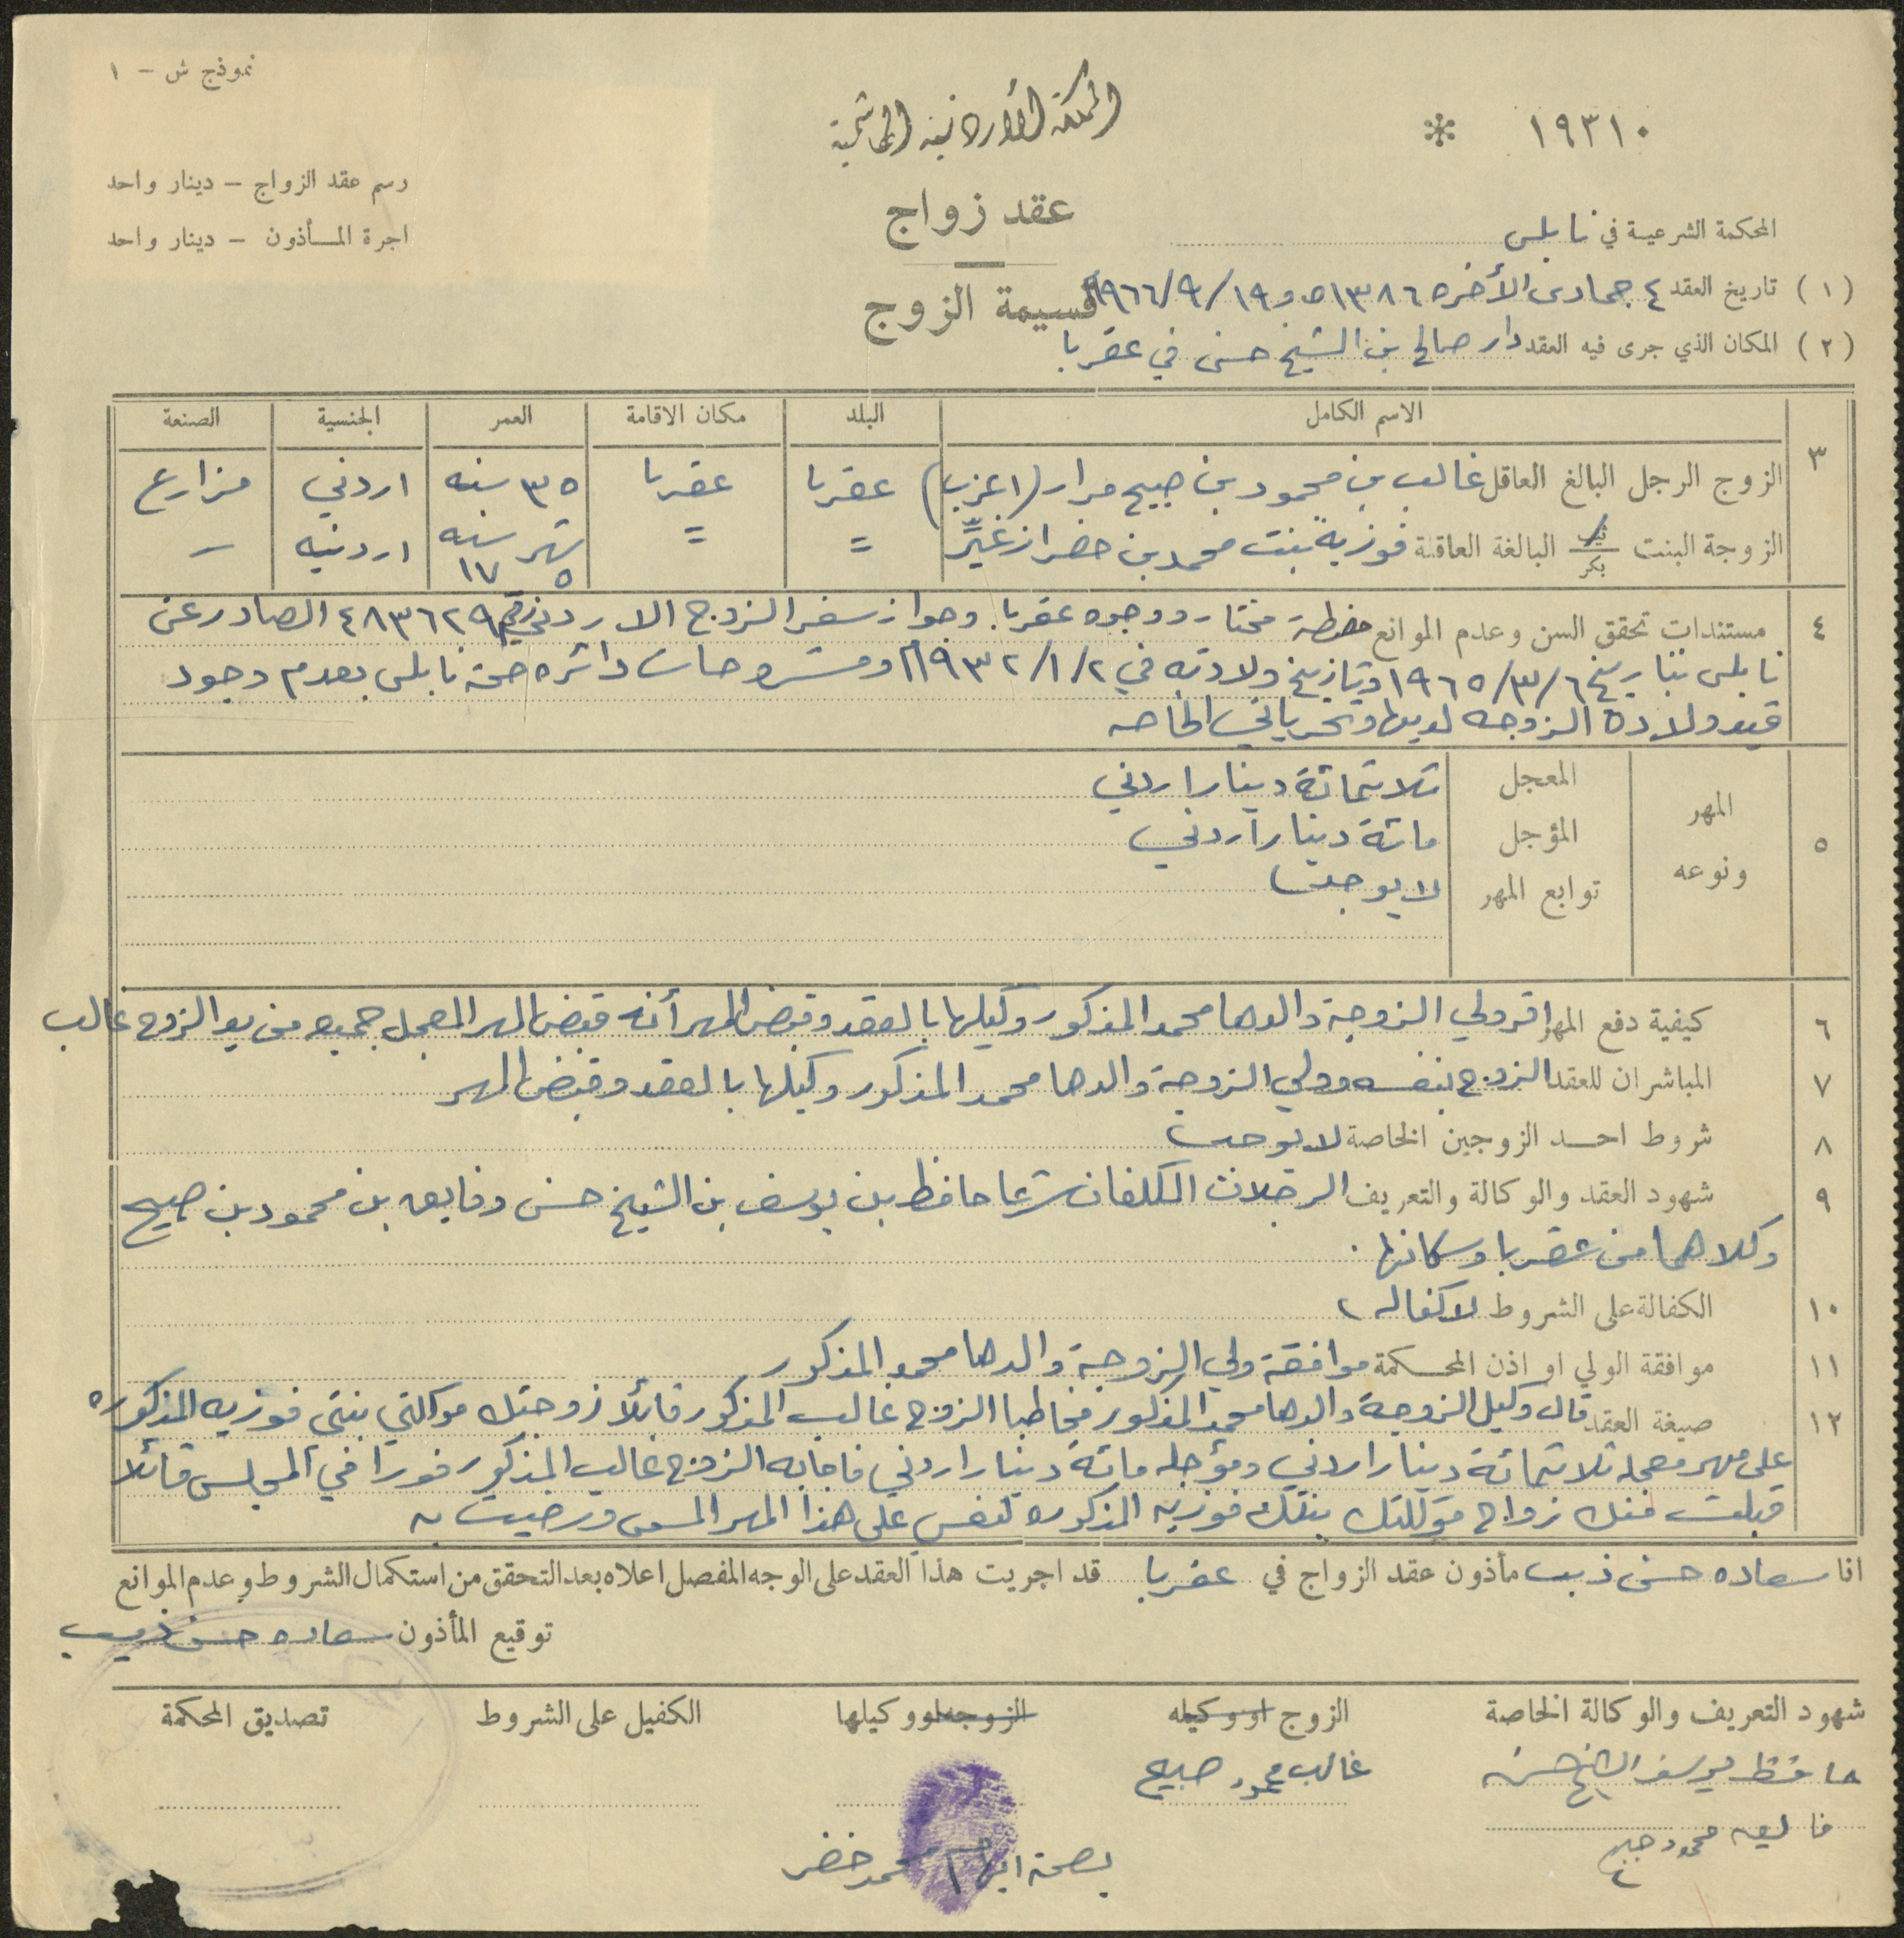 نموذج ش - ١
المملكة الأردنية الهاشمية
١٩٣١٠ *
رسم عقد الزواج - دينار واحد
اجرة المأذون - دينار واحد
عقد زواج
قسيمة الزوج
المحكمة الشرعية في نابلس
(١) تاريخ العقد ٤ جمادى الأخره ١٣٨٦ه و ١٩/٩/١٩٦٦م
(٢) المكان الذي جرى فيه العقد دار صالح بن الشيخ حسن في عقربا
٣ الاسم الكامل البلد مكان الاقامة العمر الجنسية الصنعة
الزوج الرجل البالغ العاقل غالب بن محمود بن صبيح مرار (اعزب) عقربا عقربا ٣٥ سنه اردني مزارع
الزوجة البنت ثيب بكر البالغة العاقلة فوزية بنت محمد بن خضر = = شهر سنه ٥ ١٧ اردنيه -
٤ مستندات تحقق السن وعدم الموانع مضبطة مختار ووجوه عقربا. وجواز سفر الزوج الاردني رقم ٤٨٣٦٢٩ الصادر عن
نابلس بتاريخ ٦/٣/١٩٦٥ وتاريخ ولادته في ٢/١/١٩٣٢م ومشروحات دائره صحة نابلس بعدم وجود
قيد ولادة الزوجه لديها وتحرياتي الخاصه
٥ المهر ونوعه
المعجل ثلاثمائة دينار اردني
المؤجل مائة دينار اردني
توابع المهر لا يوجد
٦ كيفية دفع المهر اقر ولي الزوجة والدها محمد المذكور وكيلها بالعقد وقبض المهر أنه قبض المهر المعجل جميعه من يد الزوج غالب
٧ المباشران للعقد الزوج بنفسه وولي الزوجة والدها محمد المذكور وكيلها بالعقد وقبض المهر
٨ شروط احد الزوجين الخاصة لا يوجد
٩ شهود العقد والوكالة والتعريف الرجلان المكلفان شرعا حافظ بن يوسف بن الشيخ حسن وفايق بن محمود بن صبيح
وكلاهما من عقربا وسكانها.
١٠ الكفالة على الشروط لا كفاله
١١ موافقة الولي او اذن المحكمة موافقة ولي الزوجة والدها محمد المذكور
١٢ صيغة العقد قال وكيل الزوجة والدها محمد المذكور مخاطبا الزوج غالب المذكور قائلا زوجتك موكلتي بنتي فوزيه المذكوره
على مهر معجله ثلاثمائة دينار اردني ومؤجله مائة دينار اردني فاجابه الزوج غالب المذكور فورا في المجلس قائلا
قبلت منك زواج موكلتك بنتك فوزيه المذكوره لنفسي على هذا المهر المسمى ورضيت به
انا سعاده حسن ذيب مأذون عقد الزواج في عقربا قد اجريت هذا العقد على الوجه المفصل اعلاه بعد التحقق من استكمال الشروط وعدم الموانع
توقيع المأذون سعاده حسن ذيب
شهود التعريف والوكالة الخاصة الزوج او وكيله الزوجة او وكيلها الكفيل على الشروط تصديق المحكمة
حافظ يوسف الشيخ حسن غالب محمود صبيح
فايق محمود صبيح
بصمة ابهام محمد خضر